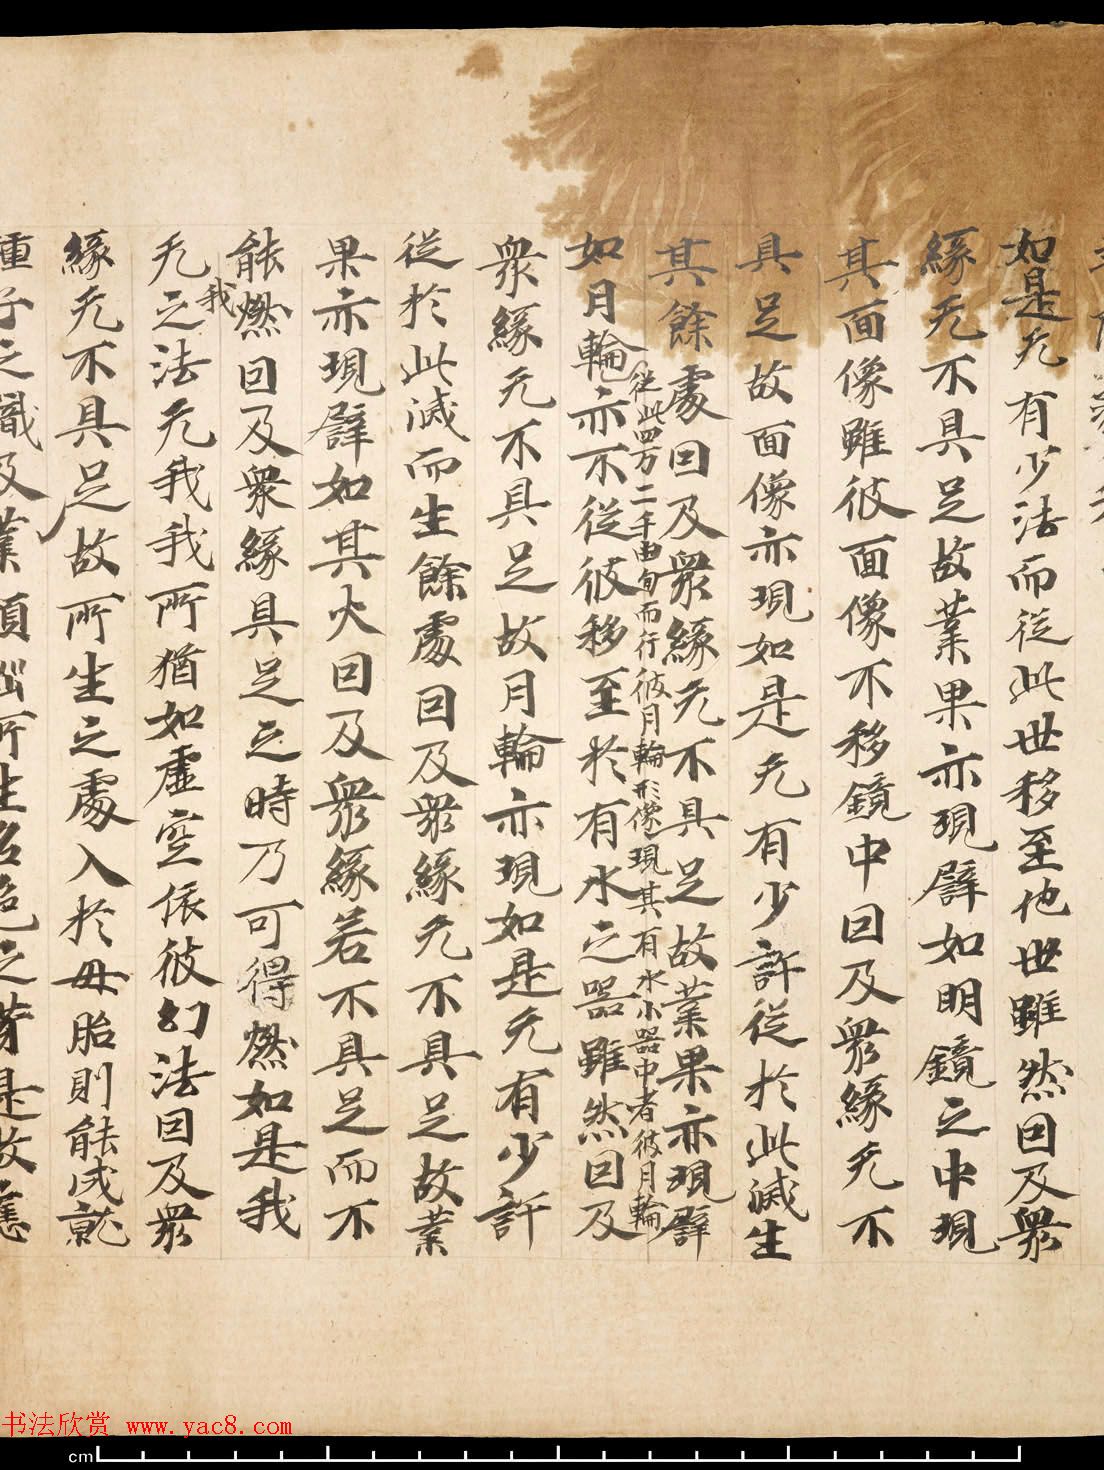 如是无有少法而从此世移至他世雖然因及衆
緣无不具足故業果亦現譬如明鏡之中現
其面像雖彼面像不移鏡中因及衆緣无不
具足故面像亦現如是无有少許從於此滅生
其餘處因及衆緣无不具足故業果亦現譬
從此四万二千由旬而行彼月輪形像現其有水小器中者彼月輪
如月輪亦不從彼移至於有水之器雖然因及
衆緣无不具足故月輪亦現如是无有少許
從於此滅而生餘處因及衆緣无不具足故業
果亦現譬如其火因及衆緣若不具足而不
能燃因及衆緣具足之時乃可得燃如是我
我
无之法无我我所猶如虛空依彼幻法因及衆
緣无不具足故所生之處入於母胎則能成就
種子之識及業煩惱所生名色之芽是故應
书法欣赏 www.yac8.com
cm